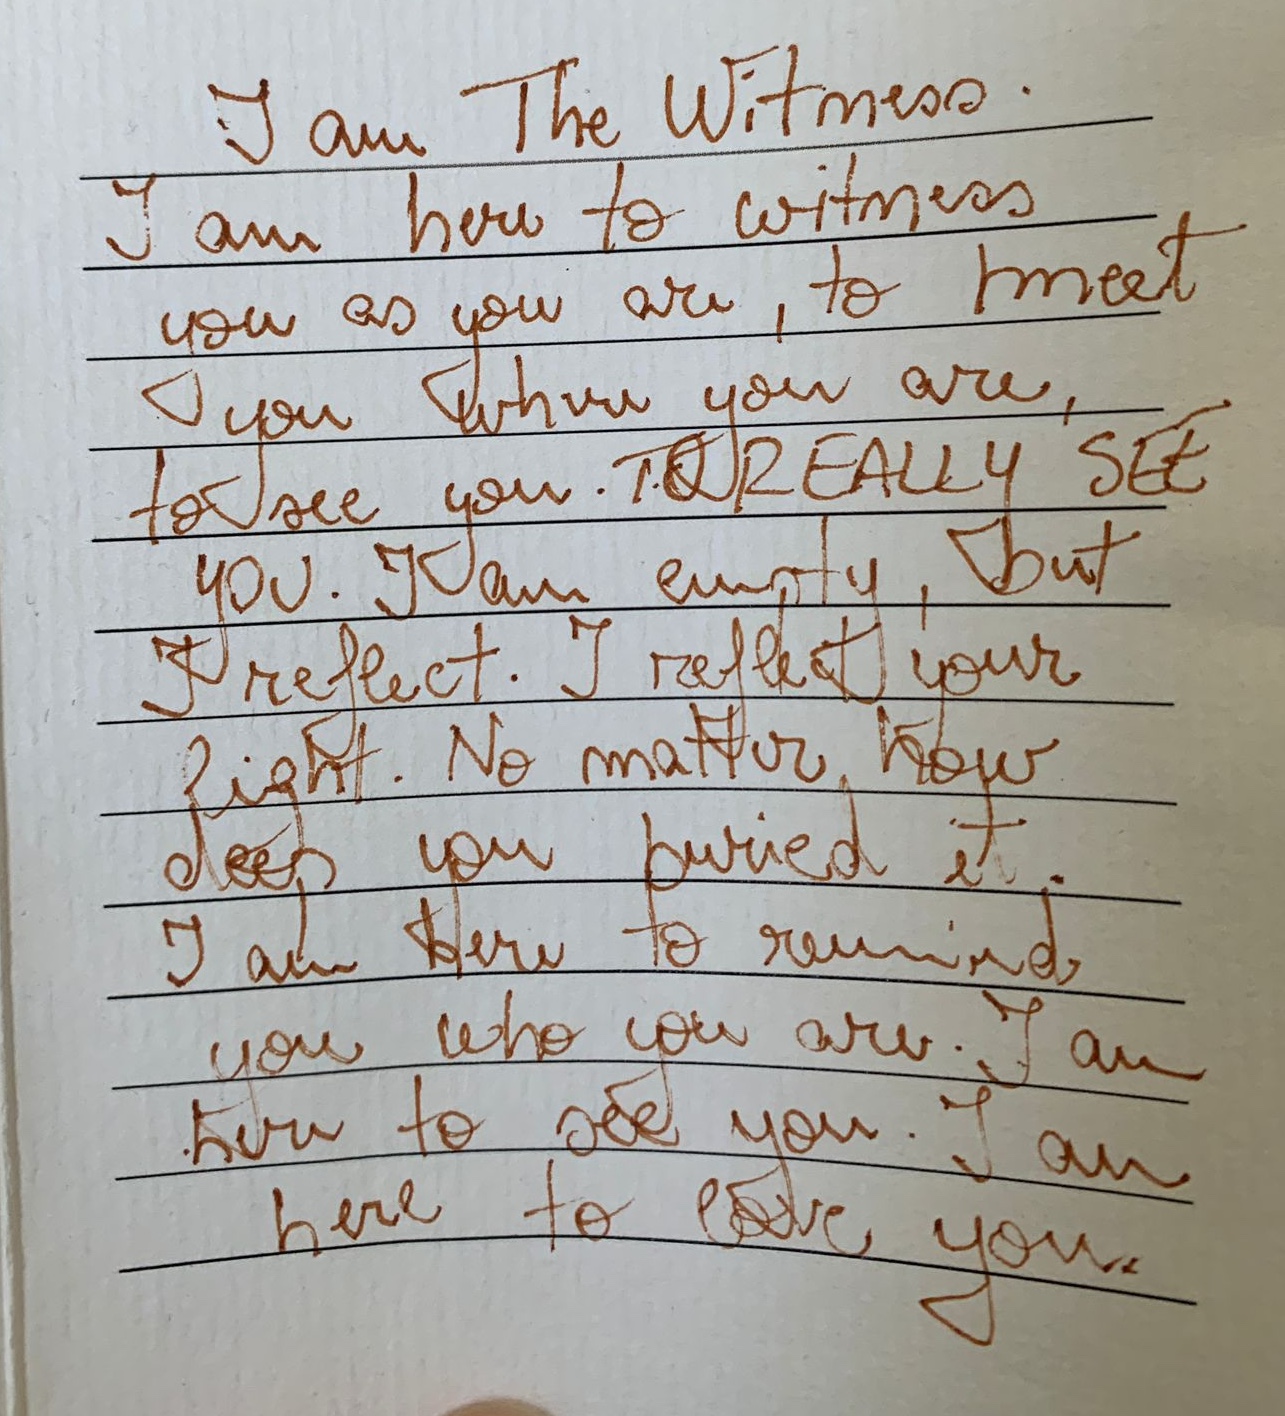 I am The Witness.
I am here to witness
you as you are, to meet
you where you are,
to see you. TO REALLY SEE
YOU. I am empty, but
I reflect. I reflect your
light. No matter how
deep you buried it.
I am here to remind
you who you are. I am
here to see you. I am
here to love you.